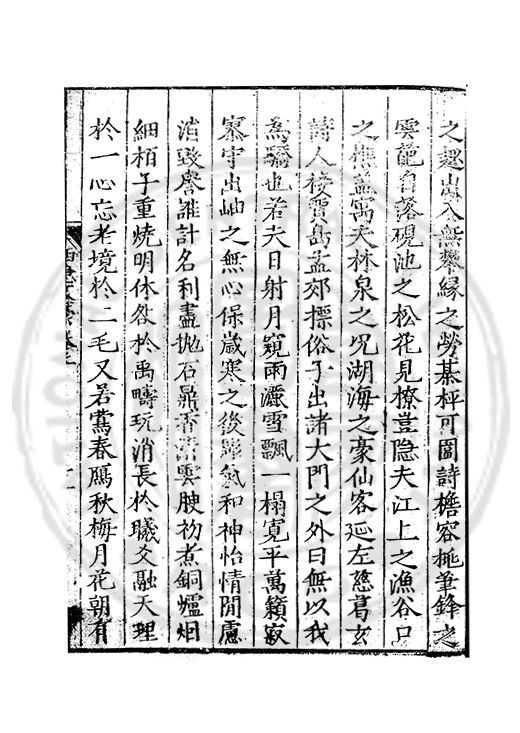 之趣出入無攀緣之勞棊枰可圖詩檐容桃筆鋒之
雲葩自落硯池之松花見撩豈隐夫江上之漁谷口
之樵盖寓夫林泉之児湖海之豪仙客延左慈葛玄
詩人接賈島孟郊標俗子出諸大門之外曰無以我
為驕也若夫日射月窺雨灑雪飄一榻寬平萬籟寂
寡宇出岫之無心保歲寒之後凋氣和神怡情閒慮
消毀譽誰計名利盡抛石鼎香清雲腴初煮銅爐烟
細栢子重焼明休咎於禹疇玩消長於羲爻融天理
於一心忘老境於二毛又若鶯春鴈秋梅月花朝有